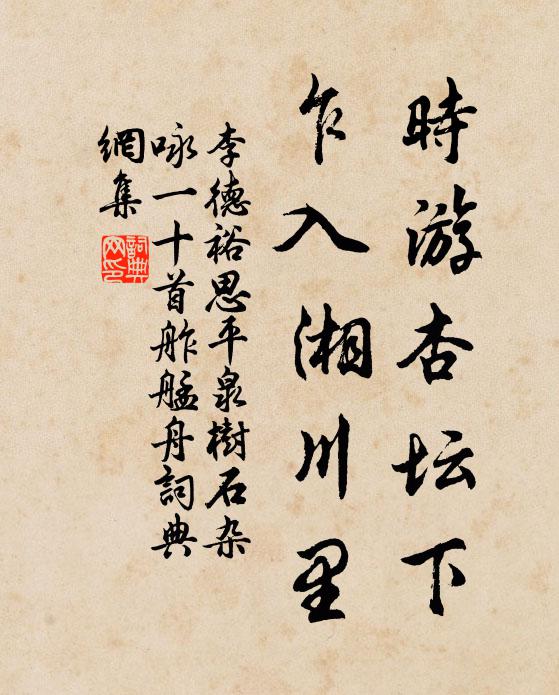 時游杏坛下
乍入湘川里
李德裕思平泉樹石杂
咏一十首舴艋舟詞典
網集
詞典
网印